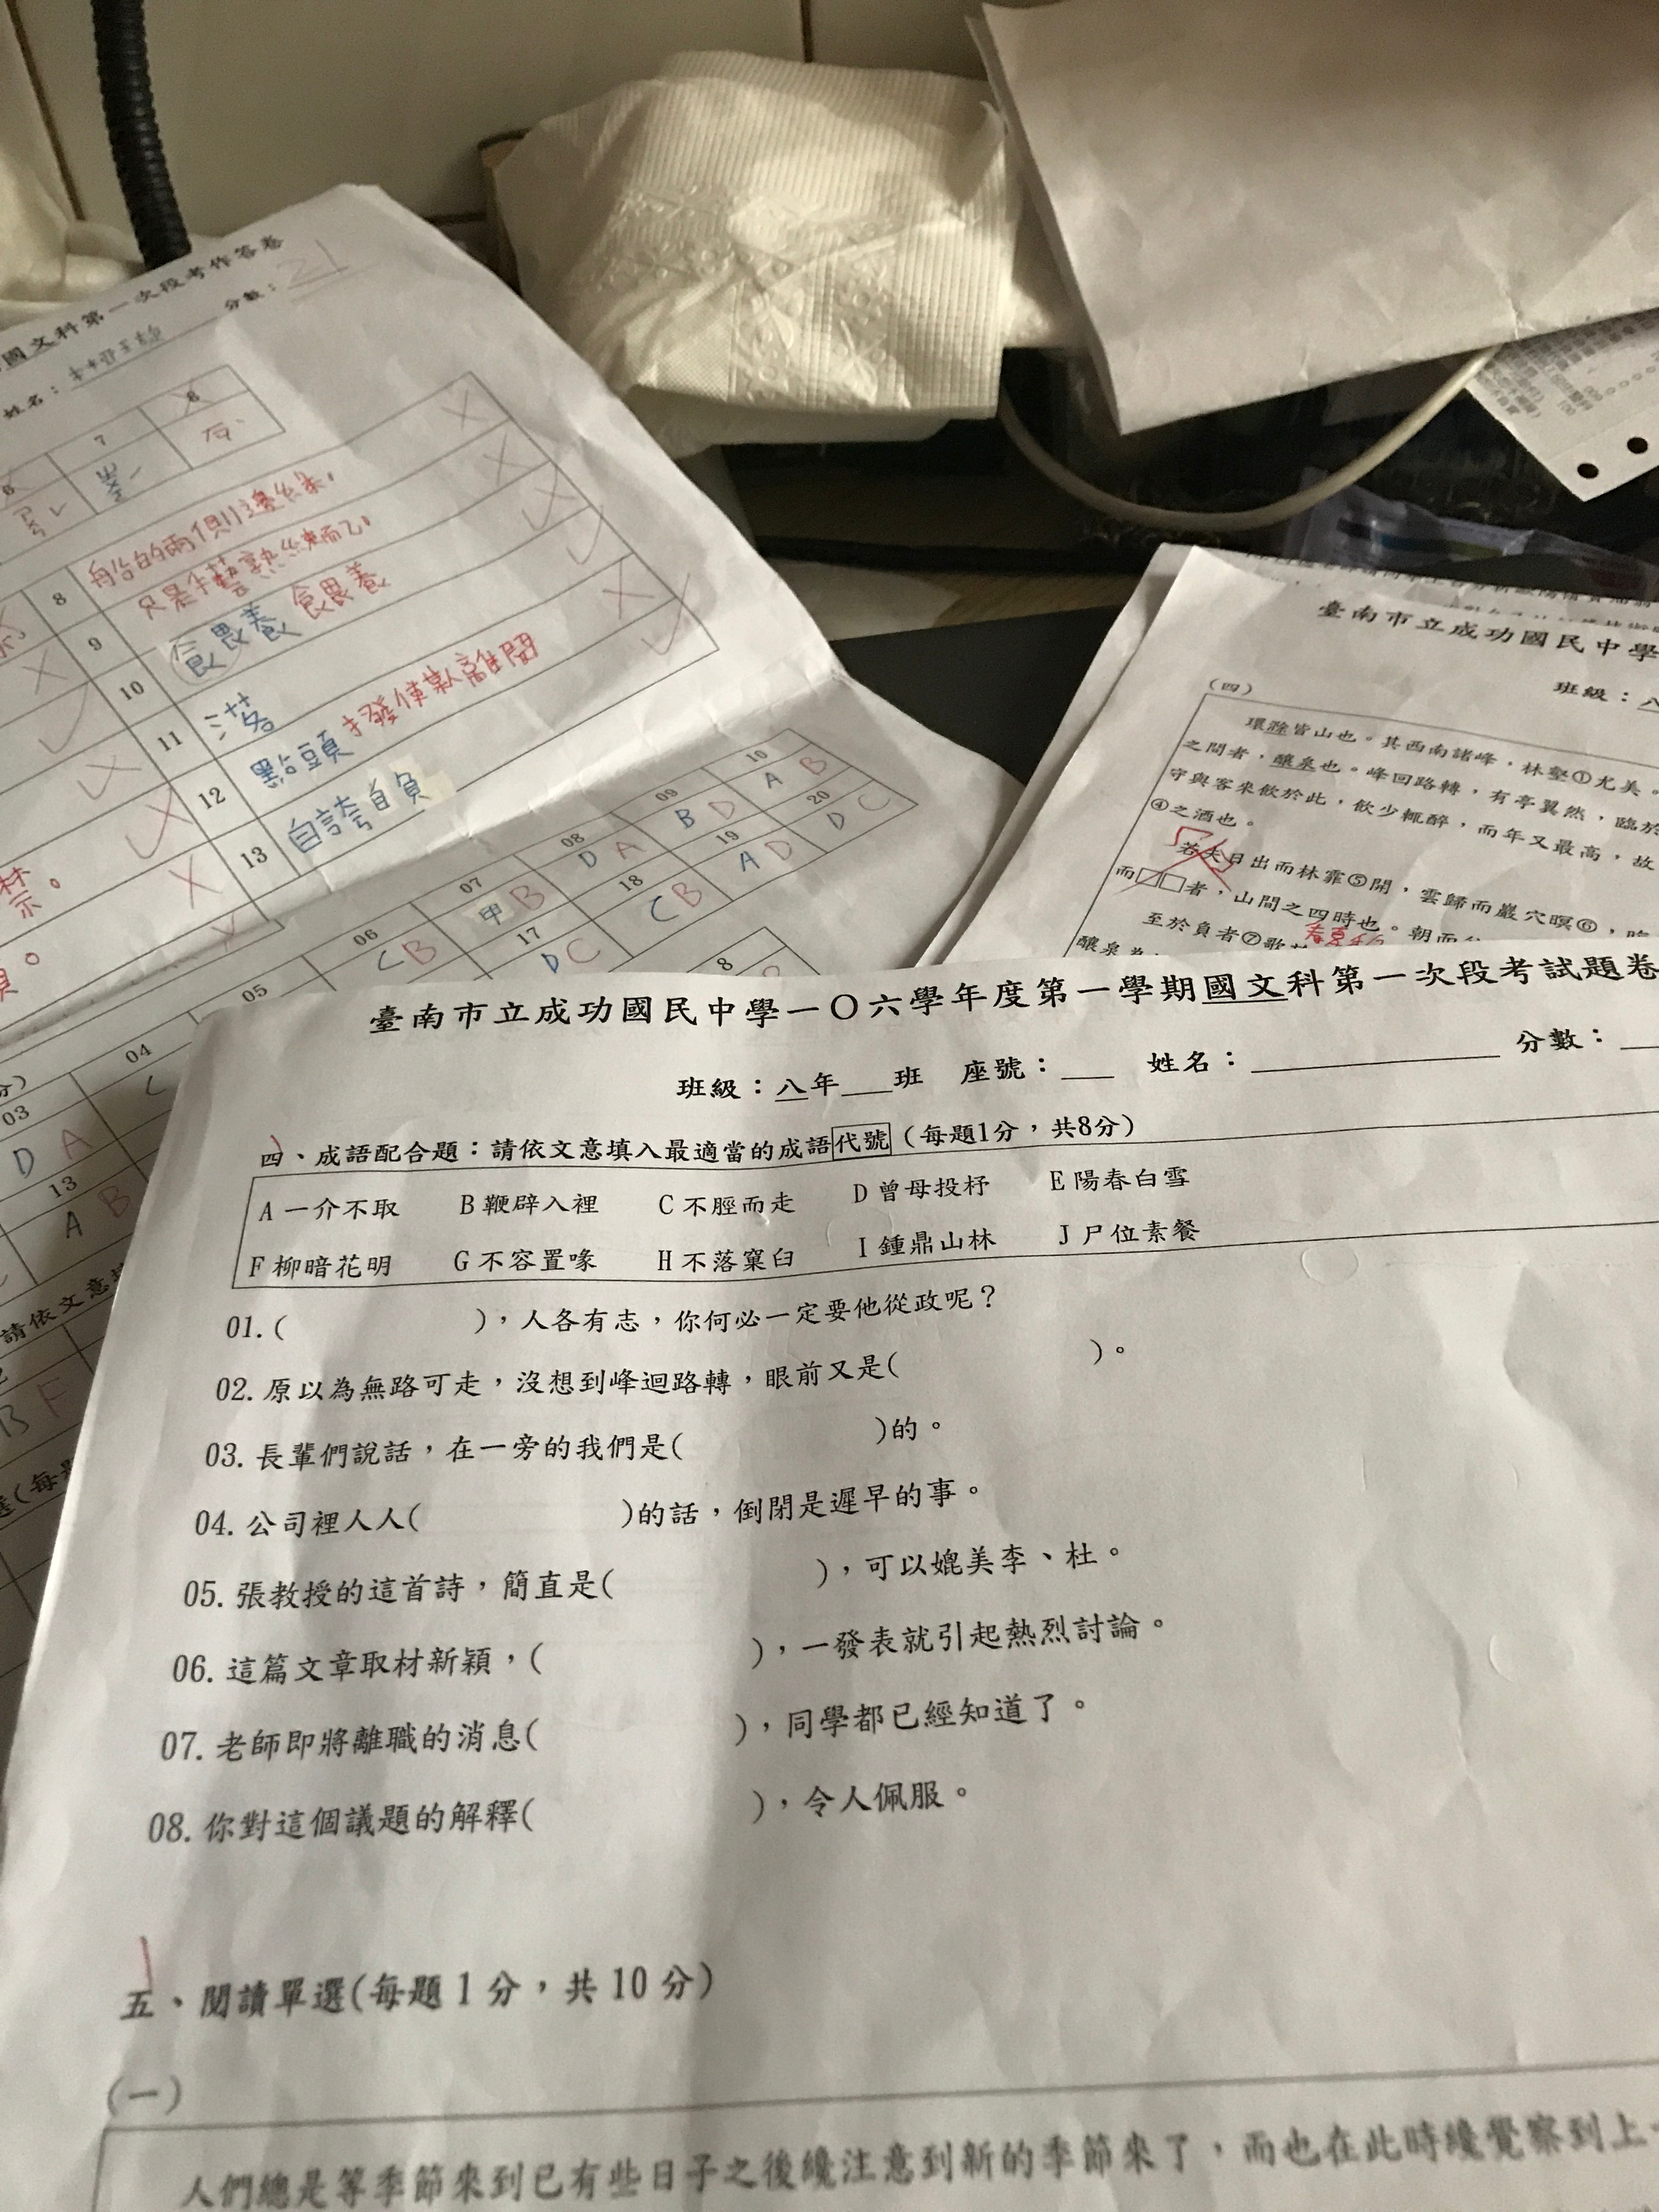 國文科第一次段考作答卷
姓名：
分數：21
6
7
8
8
船的兩側邊緣，
9
只是手藝熟練而已
10
餵養 餵養
11
落
12
點頭 打發使熟離開
13
自誇自負
03
04
05
06
07
08
09
10
D A
C B
甲 B
D A
B D
A B
13
17
18
19
20
A B
D C
C B
A D
D C
8
請依文意
B F
臺南市立成功國民中學
班級：八
（四）
環滁皆山也。其西南諸峰，林壑①尤美。
之間者，釀泉也。峰回路轉，有亭翼然，臨於
守與客來飲於此，飲少輒醉，而年又最高，故
④之酒也。
若夫日出而林霏⑤開，雲歸而巖穴暝⑥，
而□□者，山間之四時也。朝而
至於負者⑦歌
釀泉為
臺南市立成功國民中學一〇六學年度第一學期國文科第一次段考試題卷
班級：八年___班 座號：___ 姓名：__________ 分數：__
四、成語配合題：請依文意填入最適當的成語代號（每題1分，共8分）
A 一介不取 B 鞭辟入裡 C 不脛而走 D 曾母投杼 E 陽春白雪
F 柳暗花明 G 不容置喙 H 不落窠臼 I 鍾鼎山林 J 尸位素餐
01.( )，人各有志，你何必一定要他從政呢？
02.原以為無路可走，沒想到峰迴路轉，眼前又是( )。
03.長輩們說話，在一旁的我們是( )的。
04.公司裡人人( )的話，倒閉是遲早的事。
05.張教授的這首詩，簡直是( )，可以媲美李、杜。
06.這篇文章取材新穎，( )，一發表就引起熱烈討論。
07.老師即將離職的消息( )，同學都已經知道了。
08.你對這個議題的解釋( )，令人佩服。
五、閱讀單選(每題 1 分，共 10 分)
(一)
人們總是等季節來到已有些日子之後纔注意到新的季節來了，而也在此時纔覺察到上